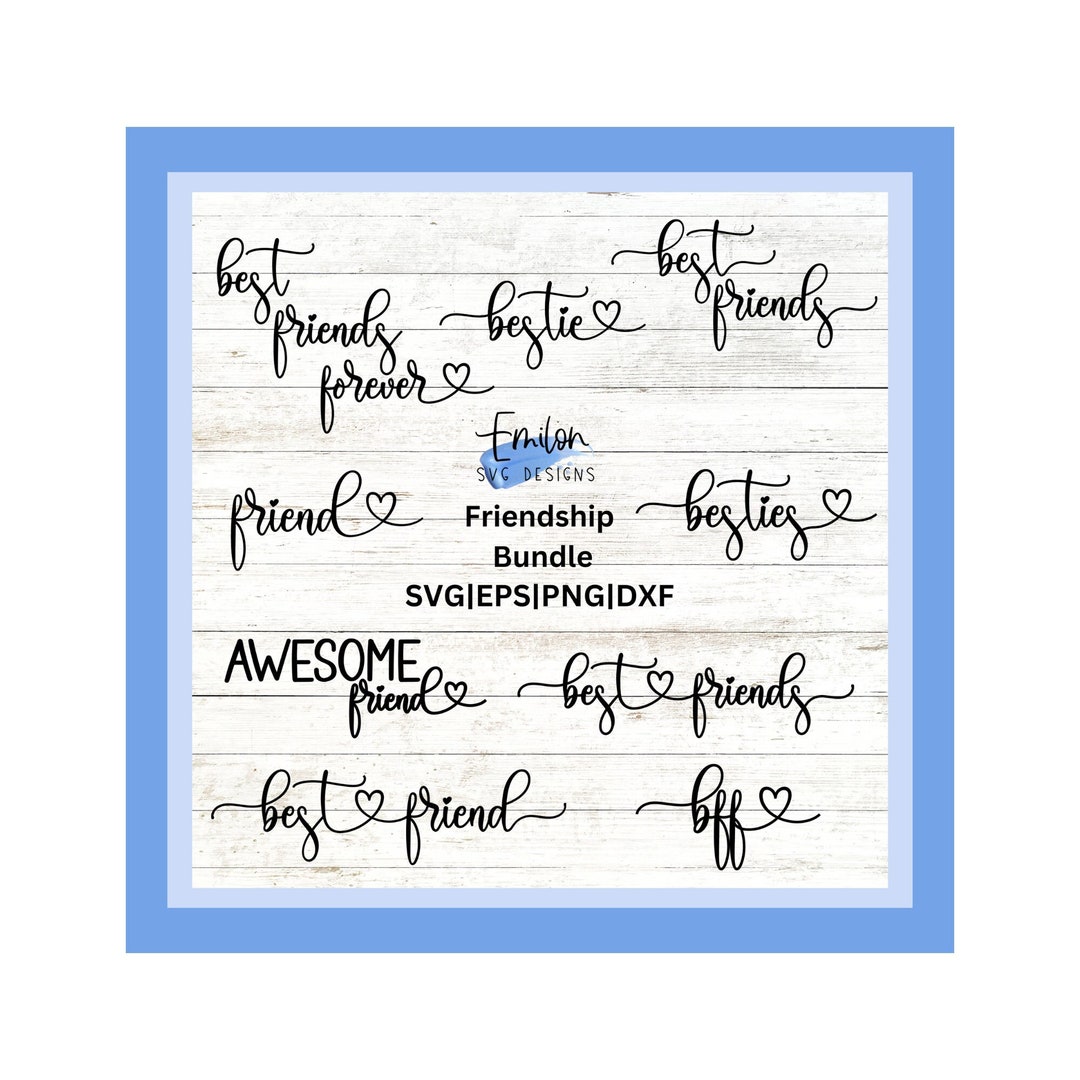 best
friends
forever
bestie
best
friends
Emilon
SVG DESIGNS
Friendship
Bundle
SVG|EPS|PNG|DXF
friend
besties
AWESOME
friend
best friends
best friend
bff